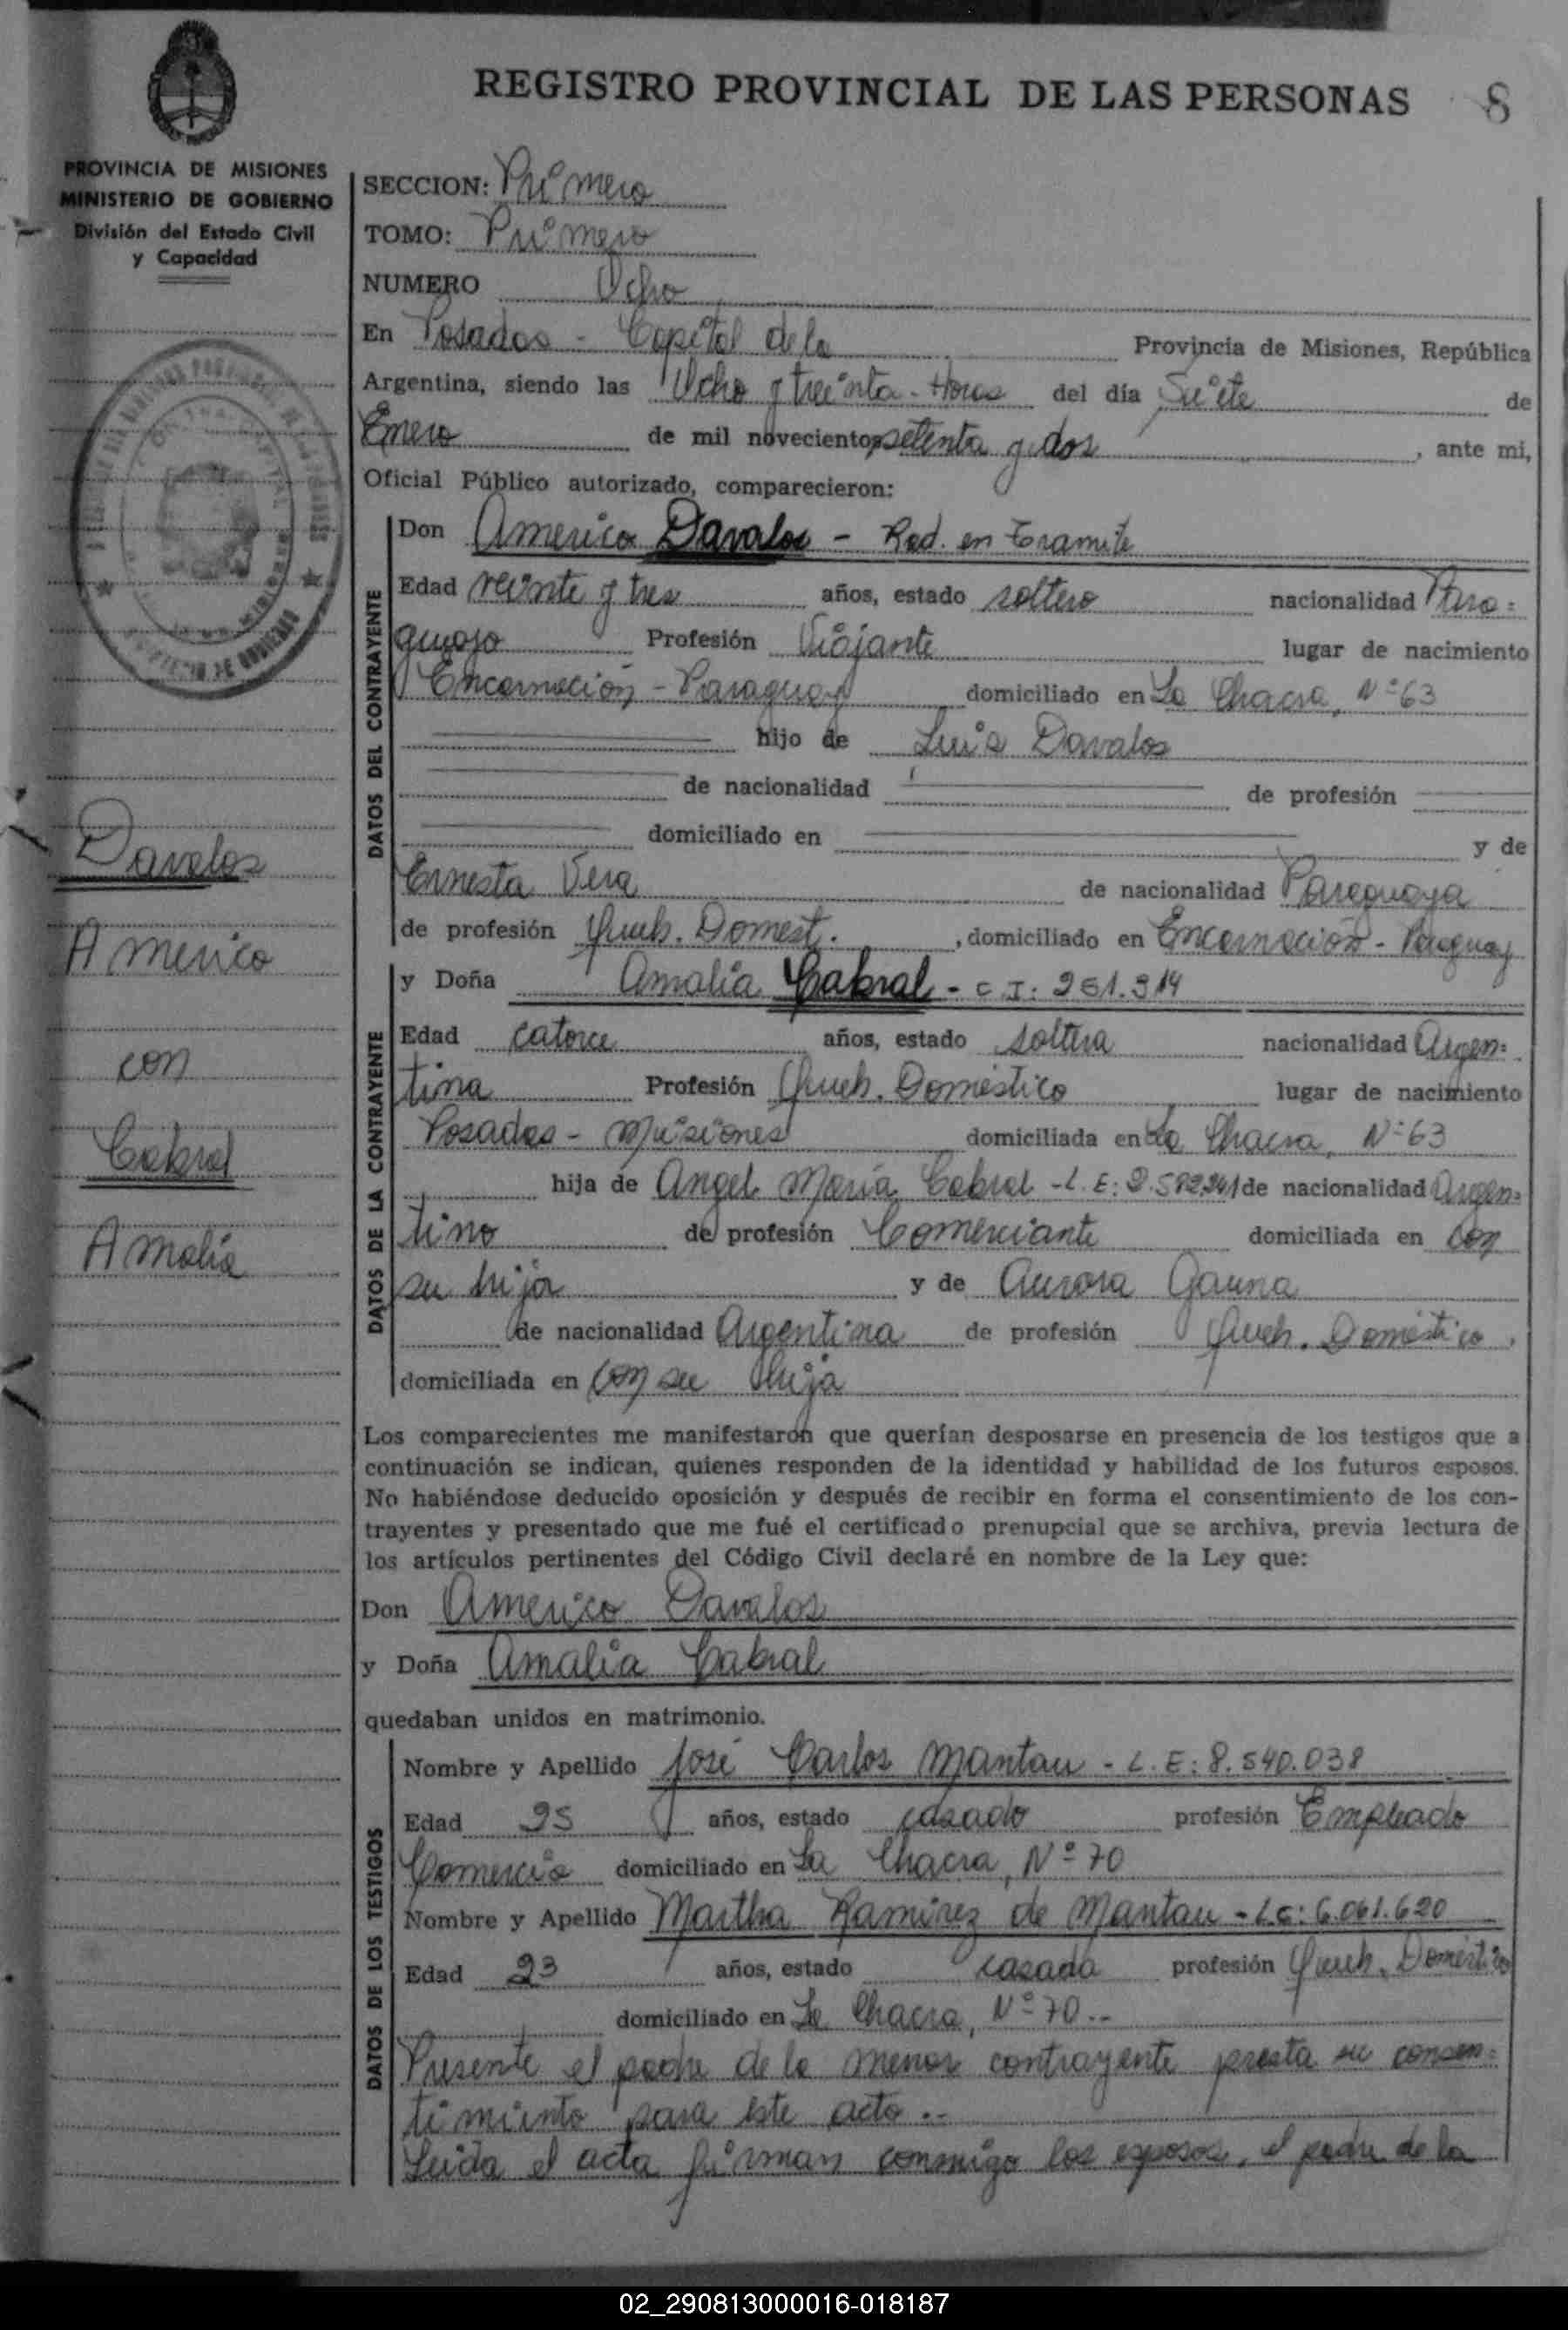 REGISTRO PROVINCIAL DE LAS PERSONAS 8
PROVINCIA DE MISIONES
MINISTERIO DE GOBIERNO
División del Estado Civil
y Capacidad
SECCION: Primero
TOMO: Primero
NUMERO Ocho
En Posadas - Capital de la Provincia de Misiones, República
Argentina, siendo las Ocho y treinta - Horas del día Siete de
Enero de mil novecientos setenta y dos, ante mi,
Oficial Público autorizado, comparecieron:
DATOS DEL CONTRAYENTE
Don Americo Davalos - Rad. en tramite
Edad veinte y tres años, estado soltero nacionalidad Para=
guayo Profesión Viajante lugar de nacimiento
Encarnación - Paraguay domiciliado en La Chacra, Nº 63
hijo de Luis Davalos
de nacionalidad de profesión
domiciliado en y de
Ernesta Vera de nacionalidad Paraguaya
de profesión Queh. Domest. , domiciliado en Encarnación - Paraguay
DATOS DE LA CONTRAYENTE
y Doña Amalia Cabral - C.I: 251.314
Edad catorce años, estado soltera nacionalidad Argen=
tina Profesión Queh. Doméstico lugar de nacimiento
Posadas - Misiones domiciliada en La Chacra, Nº 63
hija de Angel María Cabral - L.E: 2.582.241 de nacionalidad Argen=
tino de profesión Comerciante domiciliada en con
su hija y de Aurora Gauna
de nacionalidad Argentina de profesión Queh. Doméstico,
domiciliada en con su hija
Davalos
Americo
con
Cabral
Amalia
Los comparecientes me manifestaron que querían desposarse en presencia de los testigos que a
continuación se indican, quienes responden de la identidad y habilidad de los futuros esposos.
No habiéndose deducido oposición y después de recibir en forma el consentimiento de los con-
trayentes y presentado que me fué el certificado prenupcial que se archiva, previa lectura de
los artículos pertinentes del Código Civil declaré en nombre de la Ley que:
Don Americo Davalos
y Doña Amalia Cabral
quedaban unidos en matrimonio.
DATOS DE LOS TESTIGOS
Nombre y Apellido José Carlos Mantau - L.E: 8.540.038
Edad 25 años, estado casado profesión Empleado
Comercio domiciliado en La Chacra, Nº 70
Nombre y Apellido Martha Ramírez de Mantau - L.C: 6.061.620
Edad 23 años, estado casada profesión Queh. Doméstico
domiciliado en La Chacra, Nº 70..
Presente el padre de la menor contrayente presta su consen=
timiento para este acto..
Leida el acta firman conmigo los esposos, el padre de la
02_290813000016-018187